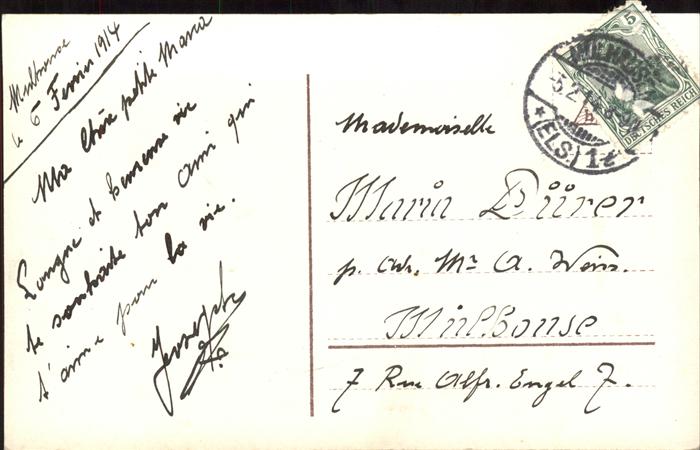 Mulhouse
le 5 Fevrier 1914
Ma Chère petite Maria
Longue et heureuse vie
te souhaite ton ami qui
t'aime pour la vie.
Joseph
5
DEUTSCHES REICH
5.2.14
(ELS.) 1
Mademoiselle
Maria Dürer
p. adr. Mr A. Weiss.
Mülhouse
7 Rue Alfr. Engel 7.